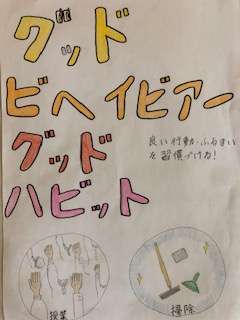 グッド
ビヘイビアー
良い行動・ふるまい
を習慣づけろ!
グッド
ハビット
授業
掃除